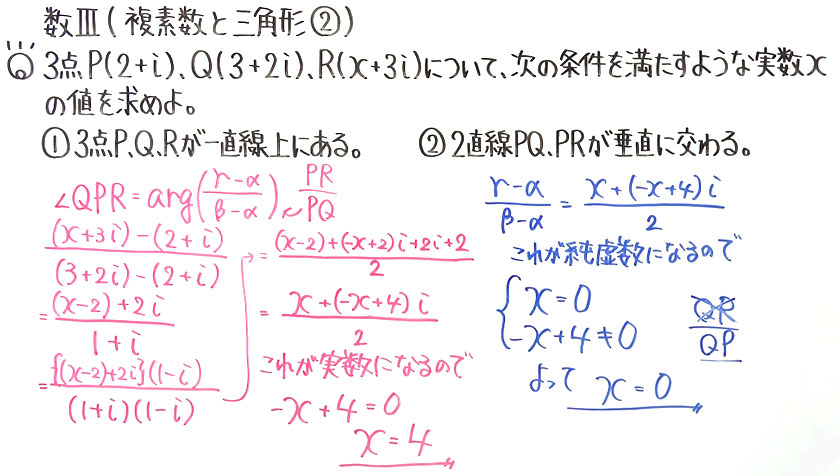 数Ⅲ(複素数と三角形②)
3点P(2+i)、Q(3+2i)、R(x+3i)について、次の条件を満たすような実数x
の値を求めよ。
①3点P、Q、Rが一直線上にある。
∠QPR=arg(r-α/β-α) PR/PQ
(x+3i)-(2+i)/(3+2i)-(2+i)
=(x-2)+2i/1+i
={(x-2)+2i}(1-i)/(1+i)(1-i)
=(x-2)+(-x+2)i+2i+2/2
=x+(-x+4)i/2
これが実数になるので
-x+4=0
x=4
②2直線PQ、PRが垂直に交わる。
r-α/β-α=x+(-x+4)i/2
これが純虚数になるので
{x=0
-x+4≠0
QR/QP
よって x=0